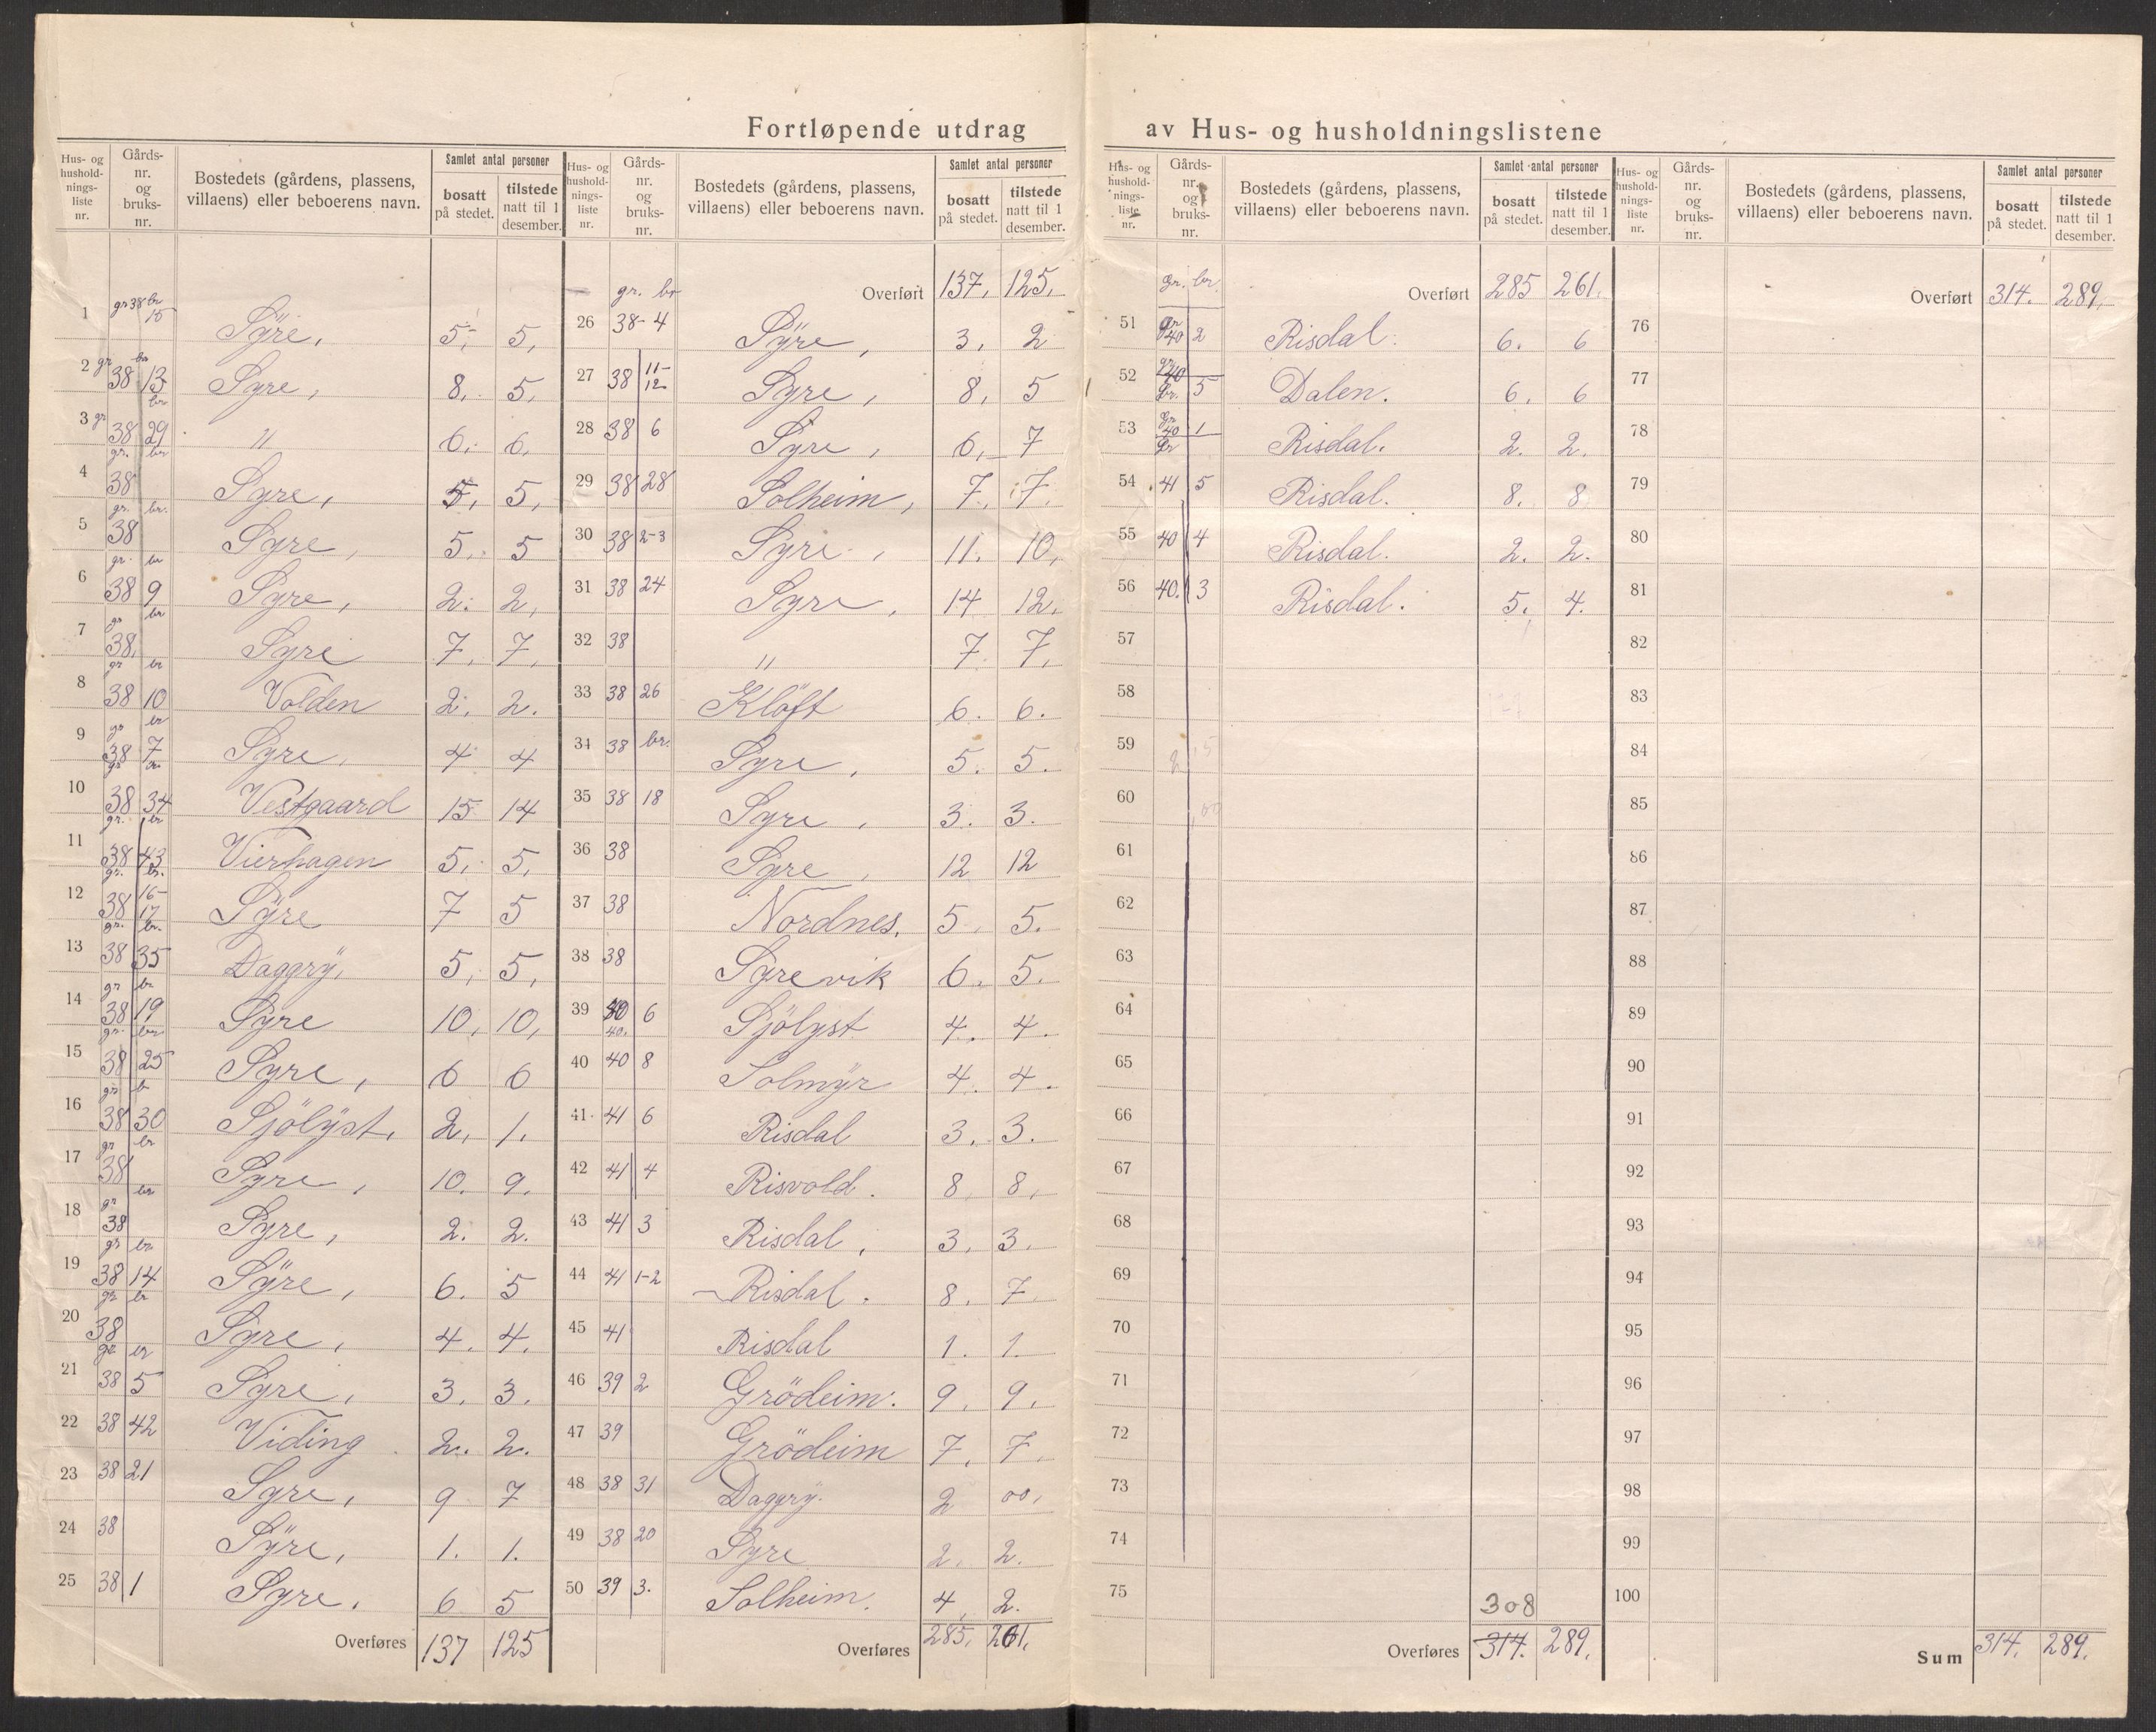 Fortløpende utdrag av Hus- og husholdningslistene
Hus- og hushold- nings- liste nr. | Gårds- nr. og bruks- nr. | Bostedets (gårdens, plassens, villaens) eller beboerens navn. | Samlet antal personer | bosatt på stedet. | tilstede natt til 1 desember.
1 gr 38 br 15 Sÿre, 5, 5,
2 gr 38 br 13 Syre, 8, 5,
3 gr 38 br 29 " 6, 6,
4 gr. 38 br Syre, 5, 5,
5 gr. 38 br. Syre, 5, 5
6 gr. 38 br 9 Syre, 2. 2,
7 gr 38. br Syre 7, 7,
8 gr 38 br 10 Volden 2. 2.
9 gr 38 br 7 Syre, 4 4
10 gr 38 br. 34 Vestgaard 15 14
11 gr. 38 br 43 Vierhagen 5, 5,
12 gr. 38 br. 16-17 Sÿre 7 5
13 gr. 38 br. 35 Daggrÿ, 5, 5,
14 gr 38 br 19 Sÿre 10, 10,
15 gr. 38 br 25 Syre, 6 6
16 gr 38 b 30 Sjölÿst, 2, 1.
17 gr 38 br Syre, 10. 9.
18 gr 38 br Syre, 2. 2.
19 gr 38 br 14 Sÿre, 6. 5
20 gr 38 br Syre, 4. 4.
21 gr 38 br 5 Syre, 3. 3.
22 38 42 Viding 2. 2.
23 38 21 Syre, 9 7
24 38 Sÿre, 1. 1.
25 38 1 Syre. 6 5
Overføres 137 125
Hus- og hushold- nings- liste nr. | Gårds- nr. og bruks- nr. | Bostedets (gårdens, plassens, villaens) eller beboerens navn. | Samlet antal personer | bosatt på stedet. | tilstede natt til 1 desember.
gr. br Overført 137, 125,
26 38- 4 Sÿre, 3, 2
27 38 11-12 Syre, 8, 5
28 38 6 Syre, 6, 7
29 38 28 Solheim, 7. 7.
30 38 2-3 Syre, 11. 10,
31 38 24 Syre, 14 12.
32 38 " 7. 7,
33 38 26 Klöft 6. 6.
34 38 br. Syre, 5. 5.
35 38 18 Syre, 3. 3.
36 38 Syre, 12 12
37 38 Nordnes. 5 5.
38 38 Syrevik 6. 5.
39 40 40. 6 Sjölyst 4. 4.
40 40 8 Solmÿr 4. 4.
41 41 6 Risdal 3. 3.
42 41 4 Risvold. 8, 8,
43 41 3 Risdal, 3. 3.
44 41 1-2 Risdal. 8. 7
45 41 Risdal 1. 1.
46 39 2 Grödeim. 9. 9.
47 39 Grödeim 7. 7.
48 38 31 Daggrÿ. 2 00,
49 38 20 Syre 2. 2.
50 39 3. Solheim. 4, 2.
Overføres 285, 261,
Hus- og hushold- nings- liste nr. | Gårds- nr. og bruks- nr. | Bostedets (gårdens, plassens, villaens) eller beboerens navn. | Samlet antal personer | bosatt på stedet. | tilstede natt til 1 desember.
gr. br. Overført 285 261.
51 gr 40 2 Risdal. 6. 6
52 gr 40 br. 5 Dalen. 6. 6
53 gr 40 1 gr Risdal. 2. 2.
54 41 5 Risdal. 8. 8
55 40 4 Risdal. 2. 2.
56 40. 3 Risdal. 5. 4.
57
58
59
60
61
62
63
64
65
66
67
68
69
70
71
72
73
74
75
308
Overføres 314. 289.
Hus- og hushold- nings- liste nr. | Gårds- nr. og bruks- nr. | Bostedets (gårdens, plassens, villaens) eller beboerens navn. | Samlet antal personer | bosatt på stedet. | tilstede natt til 1 desember.
Overført 314. 289,
76
77
78
79
80
81
82
83
84
85
86
87
88
89
90
91
92
93
94
95
96
97
98
99
100
Sum 314. 289.